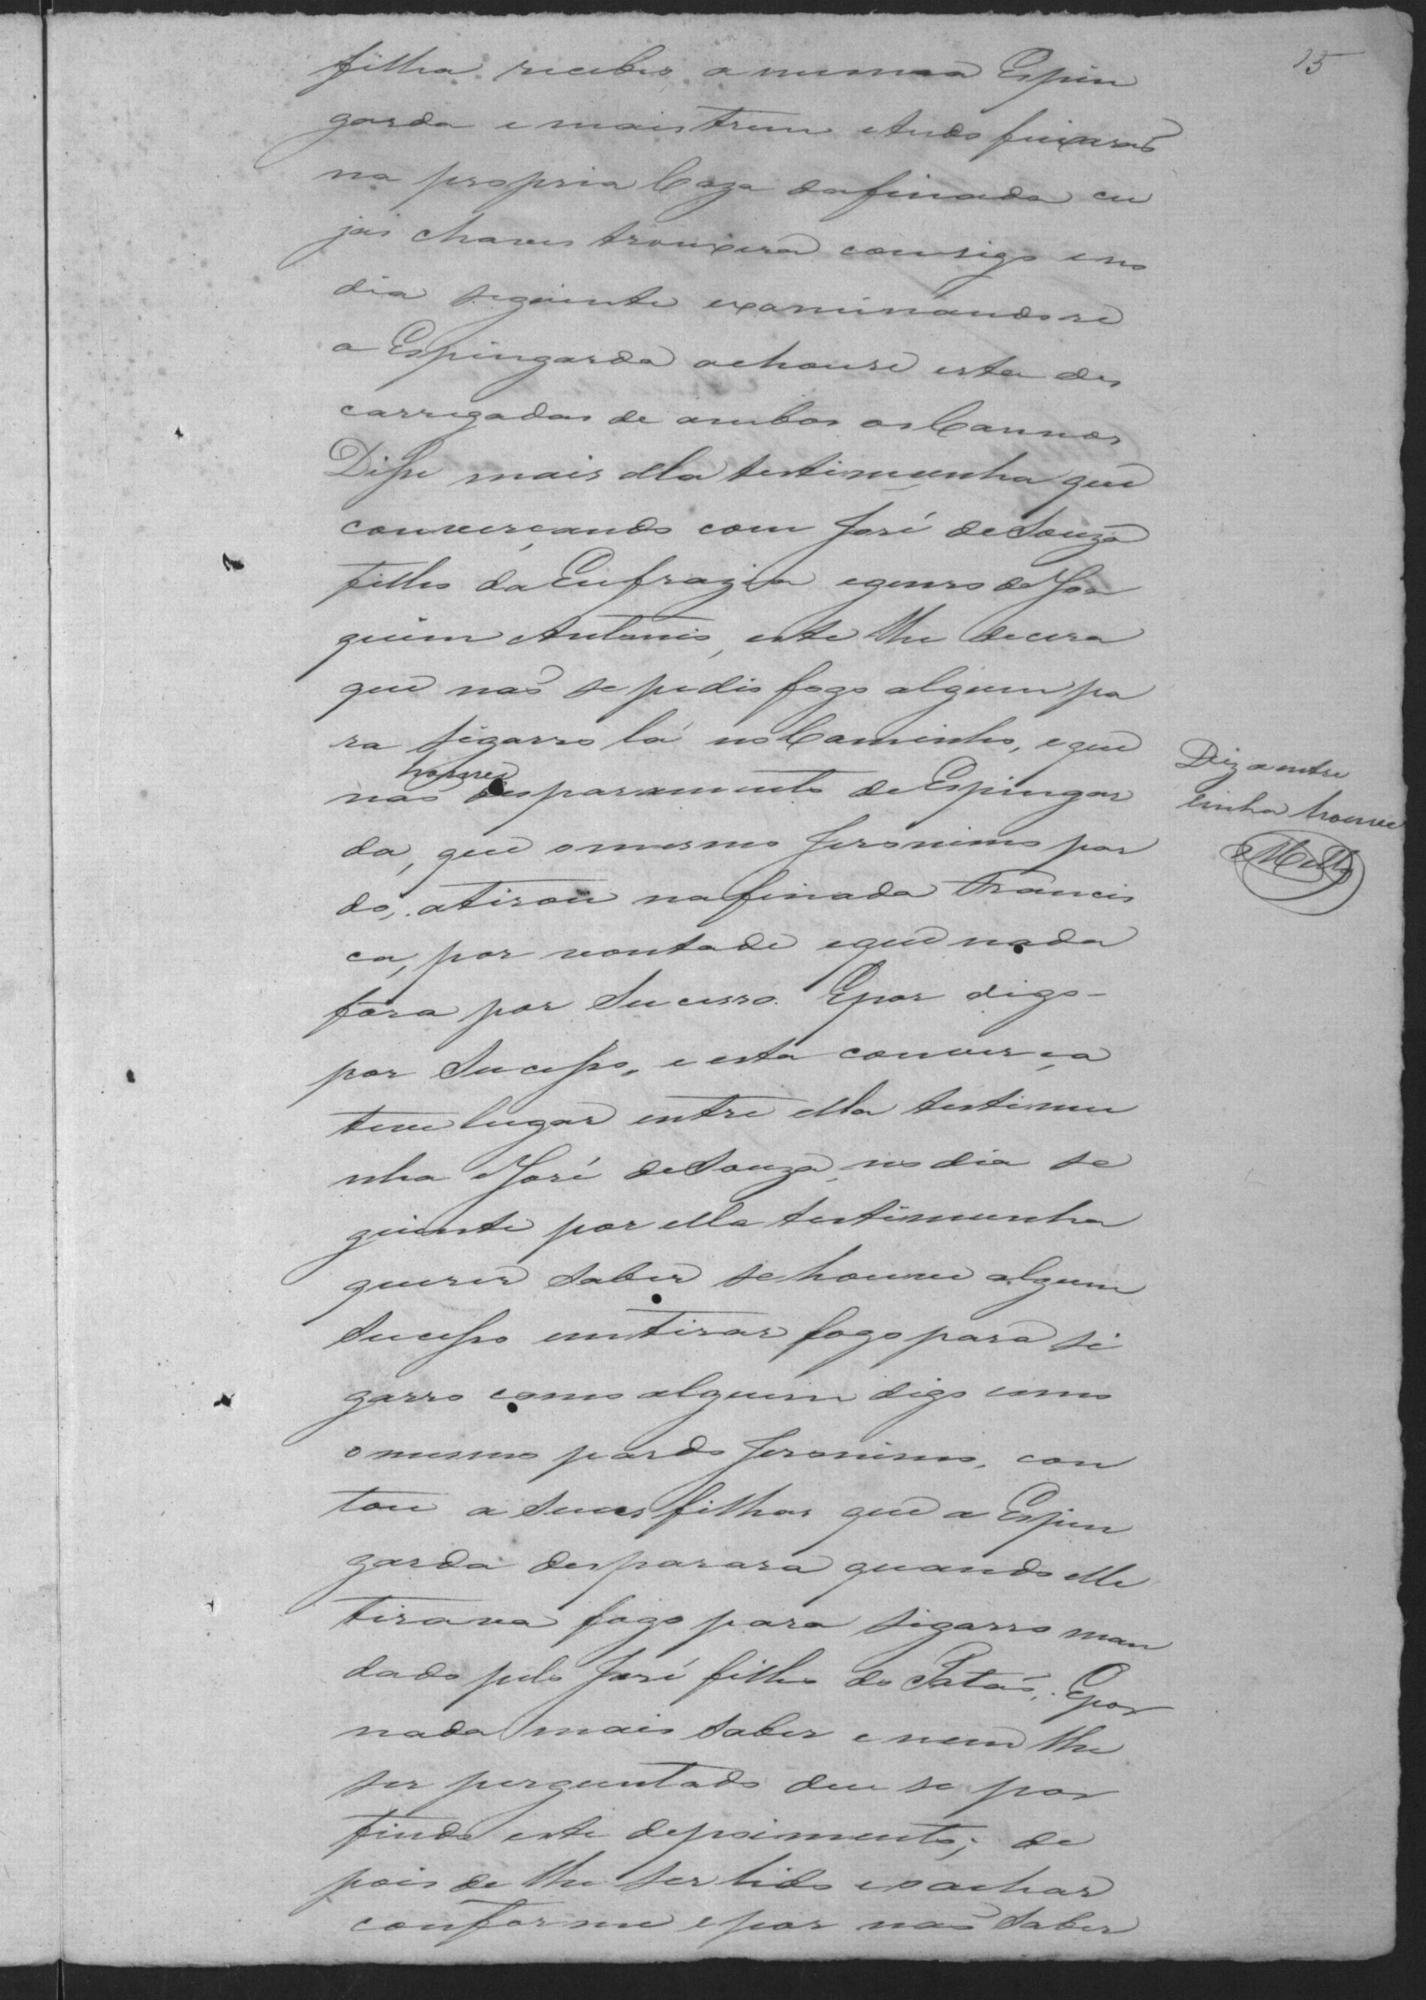 15
filha recebeo a mesma Espin
garda e mais trem e tudo feixaraõ
na propria Caza da finada cu
jas chaves trouxera comsigo e no
dia seguinte examinandose
a Espingarda achouse esta des
carregadas de ambos os Cannos
Disse mais ella testimunha que
converçando com José de Souza
filho da Eufrazia e genro de Joa
quim Antonio, este lhe decera
que naõ se pedio fogo algum pa
ra sigarro lá no Caminho, e que
houve
naõ desparamento de Espingar
da, que o mesmo Jeronimo par
do, atirou na finada Francis
ca, por vontade e que nada
fora por Sucesso. Epor digo-
por Sucesso, e esta converça
teve lugar entre ella testimu
nha e José de Souza, no dia se
guinte por ella testimunha
querer saber se houve algum
sucesso em tirar fogo para si
garro como alguem digo como
o mesmo pardo Jeronimo, con
tou a suas filhas que a Espin
garda desparara quando elle
tirava fogo para sigarro man
dado pelo José filho do Pataó. Epor
nada mais saber e nem lhe
ser perguntado deu se por
findo este depoimento; de
pois de lhe ser lido e o achar
conforme e por naõ saber
Diz a entre
linha houve
Mello